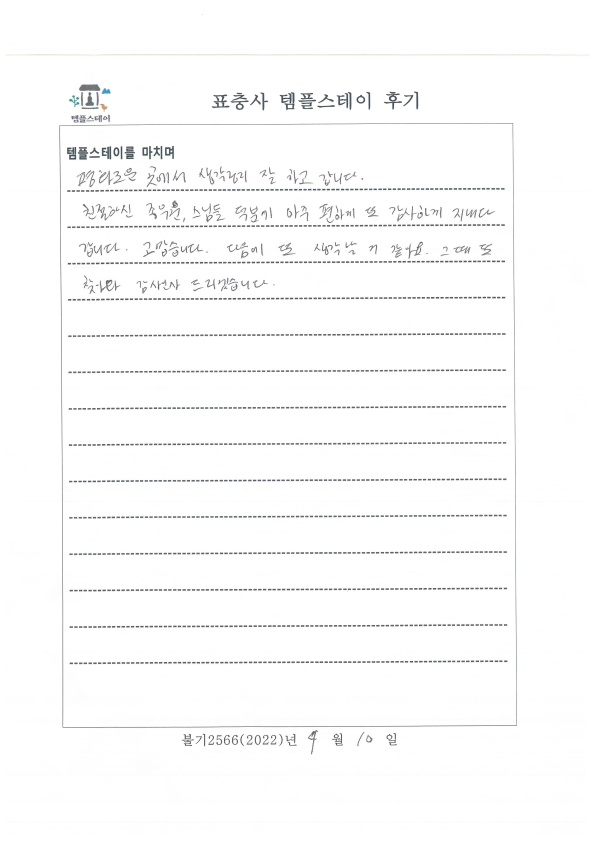 템플스테이
표충사 템플스테이 후기
템플스테이를 마치며
평화로운 곳에서 생각정리 잘 하고 갑니다.
친절하신 직원, 스님들 덕분에 아주 편하게 또 감사하게 지내다
갑니다. 고맙습니다. 다음에 또 생각날 거 같아요. 그때 또
찾아와 감사인사 드리겠습니다.
불기2566(2022)년 9 월 10 일